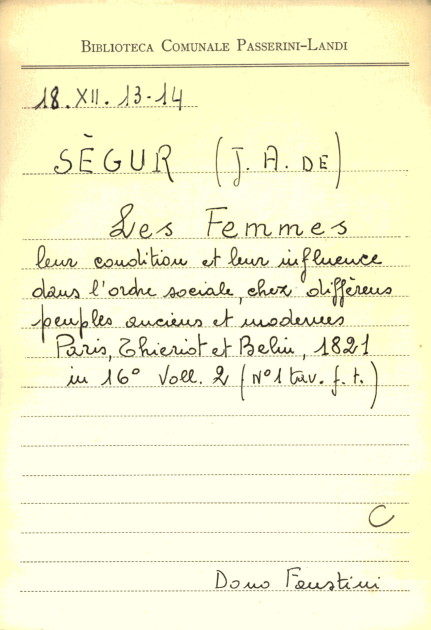 BIBLIOTECA COMUNALE PASSERINI-LANDI
18. XII. 13-14
SÈGUR (J. A. DE)
Les Femmes
leur condition et leur influence
dans l'ordre sociale, chez diffèrens
peuples anciens et modernes
Paris, Thieriot et Belin, 1821
in 16° Voll. 2 (N° 1 tav. f. t.)
C
Dono Faustini